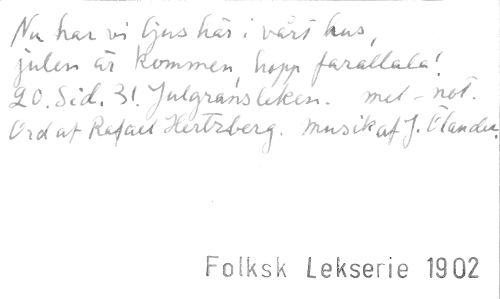 Nu har vi ljus här i vårt hus,
julen är kommen, hopp farallala!
20. Sid. 31. Julgransleken. mel-not.
Ord af Rafael Hertzberg. Musik af J. Ölander.
Folksk Lekserie 1902